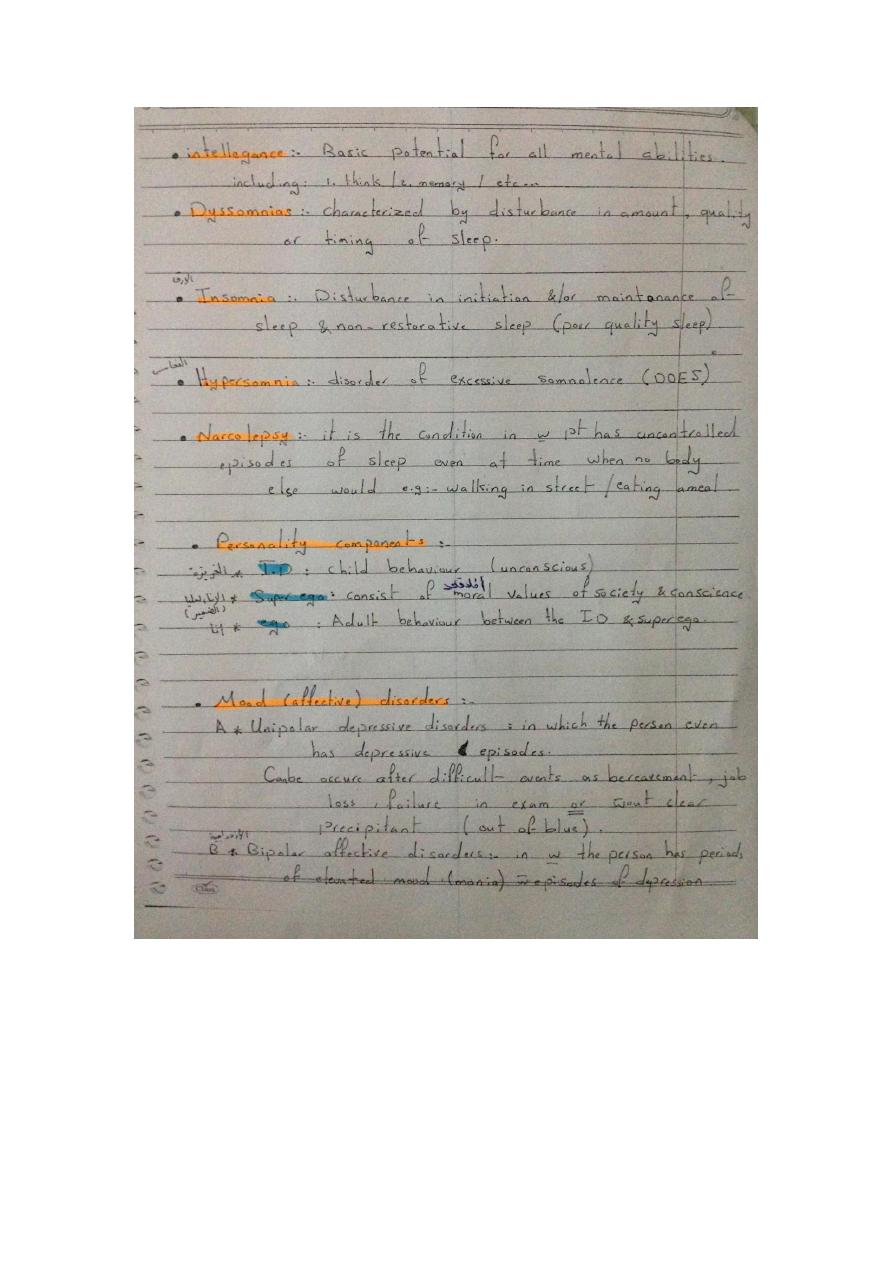 • intellegance :- Basic potential for all mental abilities.
including: 1. think / 2. memory / etc...
• Dyssomnias :- characterized by disturbance in amount, quality
or timing of sleep.
الارق
• Insomnia :- Disturbance in initiation &/or maintanance of
sleep & non-restorative sleep (poor quality sleep)
النعاس
• Hypersomnia :- disorder of excessive somnolence (DOES)
• Narcolepsy :- it is the condition in w pt has uncontrolled
episodes of sleep even at time when no body
else would e.g:- walking in street / eating ameal
• Personality components :-
الغريزة * I.D : child behaviour (unconscious)
* Super ego : consist of moral values of society & conscience
(الضمير)
انا * ego : Adult behaviour between the ID & super ego.
• Mood (affective) disorders :-
A * Unipolar depressive disorders : in which the person even
has depressive episodes.
Canbe occure after difficult events as bereavement, job
loss, failure in exam or wout clear
precipitant (out of blue).
B * Bipolar affective disorders :- in w the person has periods
of elevated mood (mania) episodes of depression